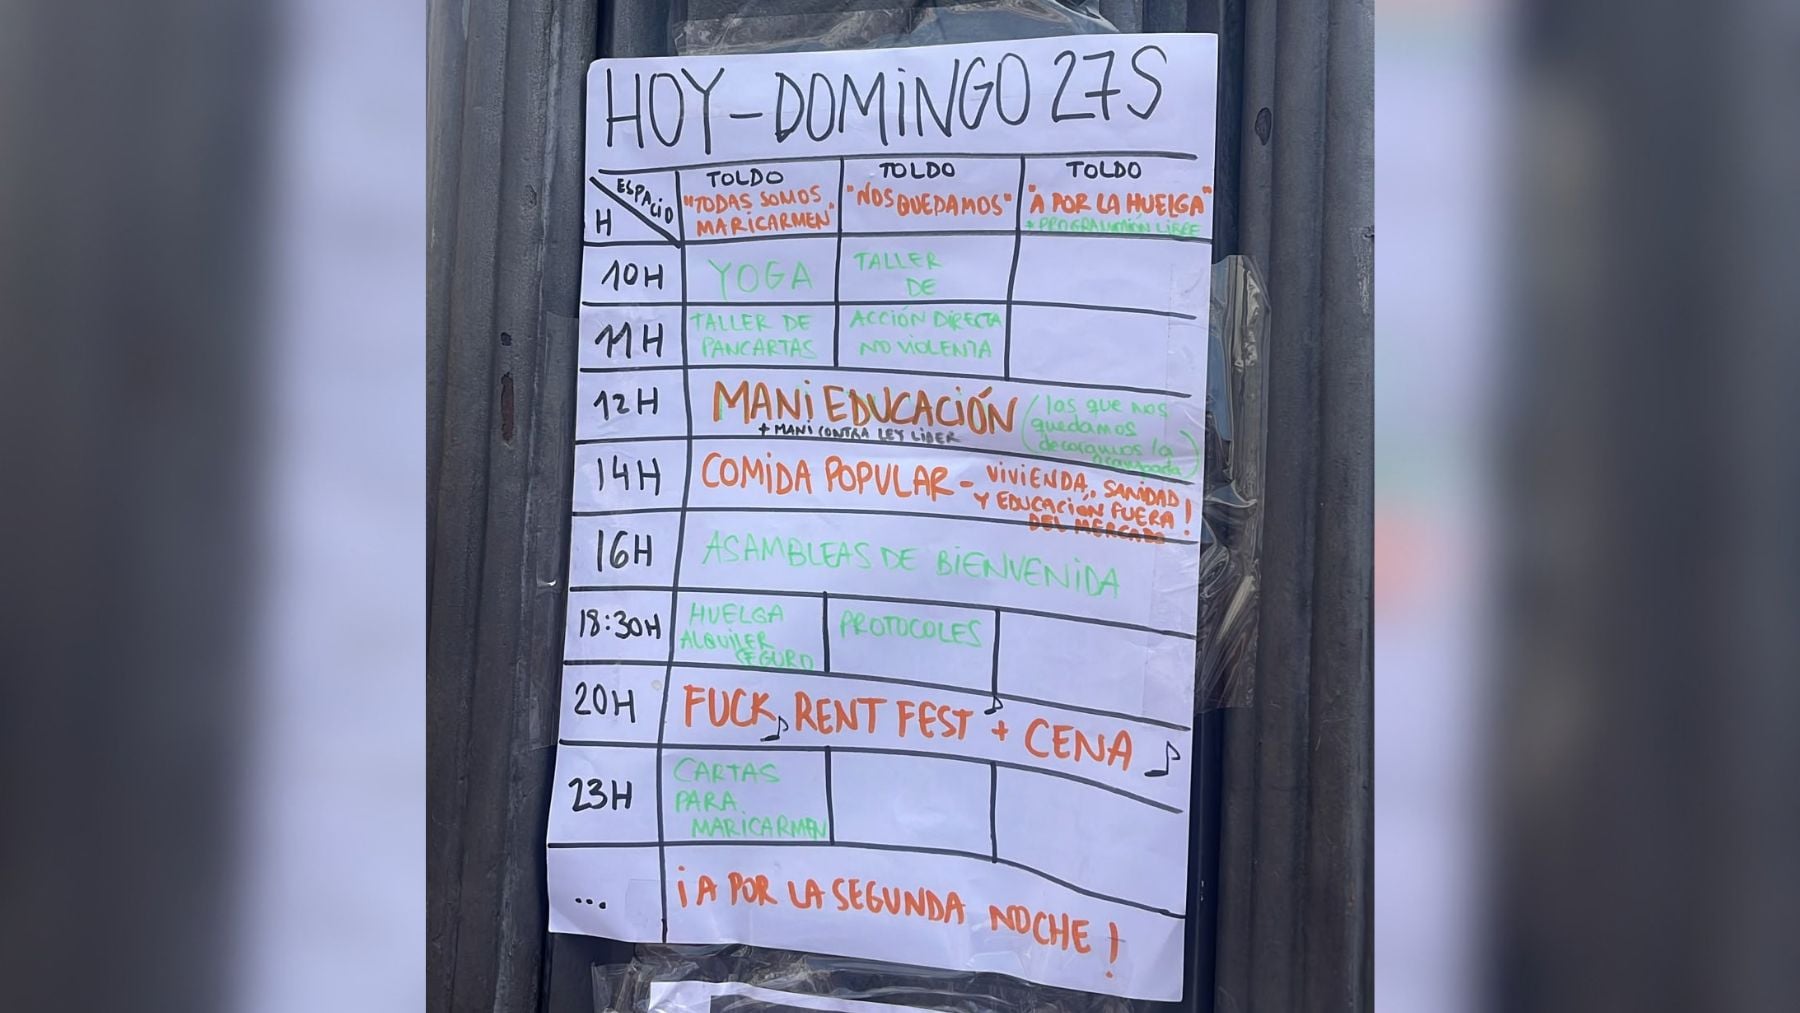 HOY-DOMINGO 27S
ESPACIO
H
TOLDO
"TODAS SOMOS
MARICARMEN"
TOLDO
"NOS QUEDAMOS"
TOLDO
"A POR LA HUELGA"
+ PROGRAMACIÓN LIBRE
10H
YOGA
TALLER
DE
11H
TALLER DE
PANCARTAS
ACCIÓN DIRECTA
NO VIOLENTA
12H
MANI EDUCACIÓN
+ MANI CONTRA LEY LIDER
(las que nos
quedamos
decoramos la
acampada)
14H
COMIDA POPULAR - VIVIENDA, SANIDAD
Y EDUCACIÓN FUERA
DEL MERCADO!
16H
ASAMBLEAS DE BIENVENIDA
18:30H
HUELGA
ALQUILER
SEGURO
PROTOCOLES
20H
FUCK RENT FEST + CENA
23H
CARTAS
PARA
MARICARMEN
...
¡A POR LA SEGUNDA NOCHE!